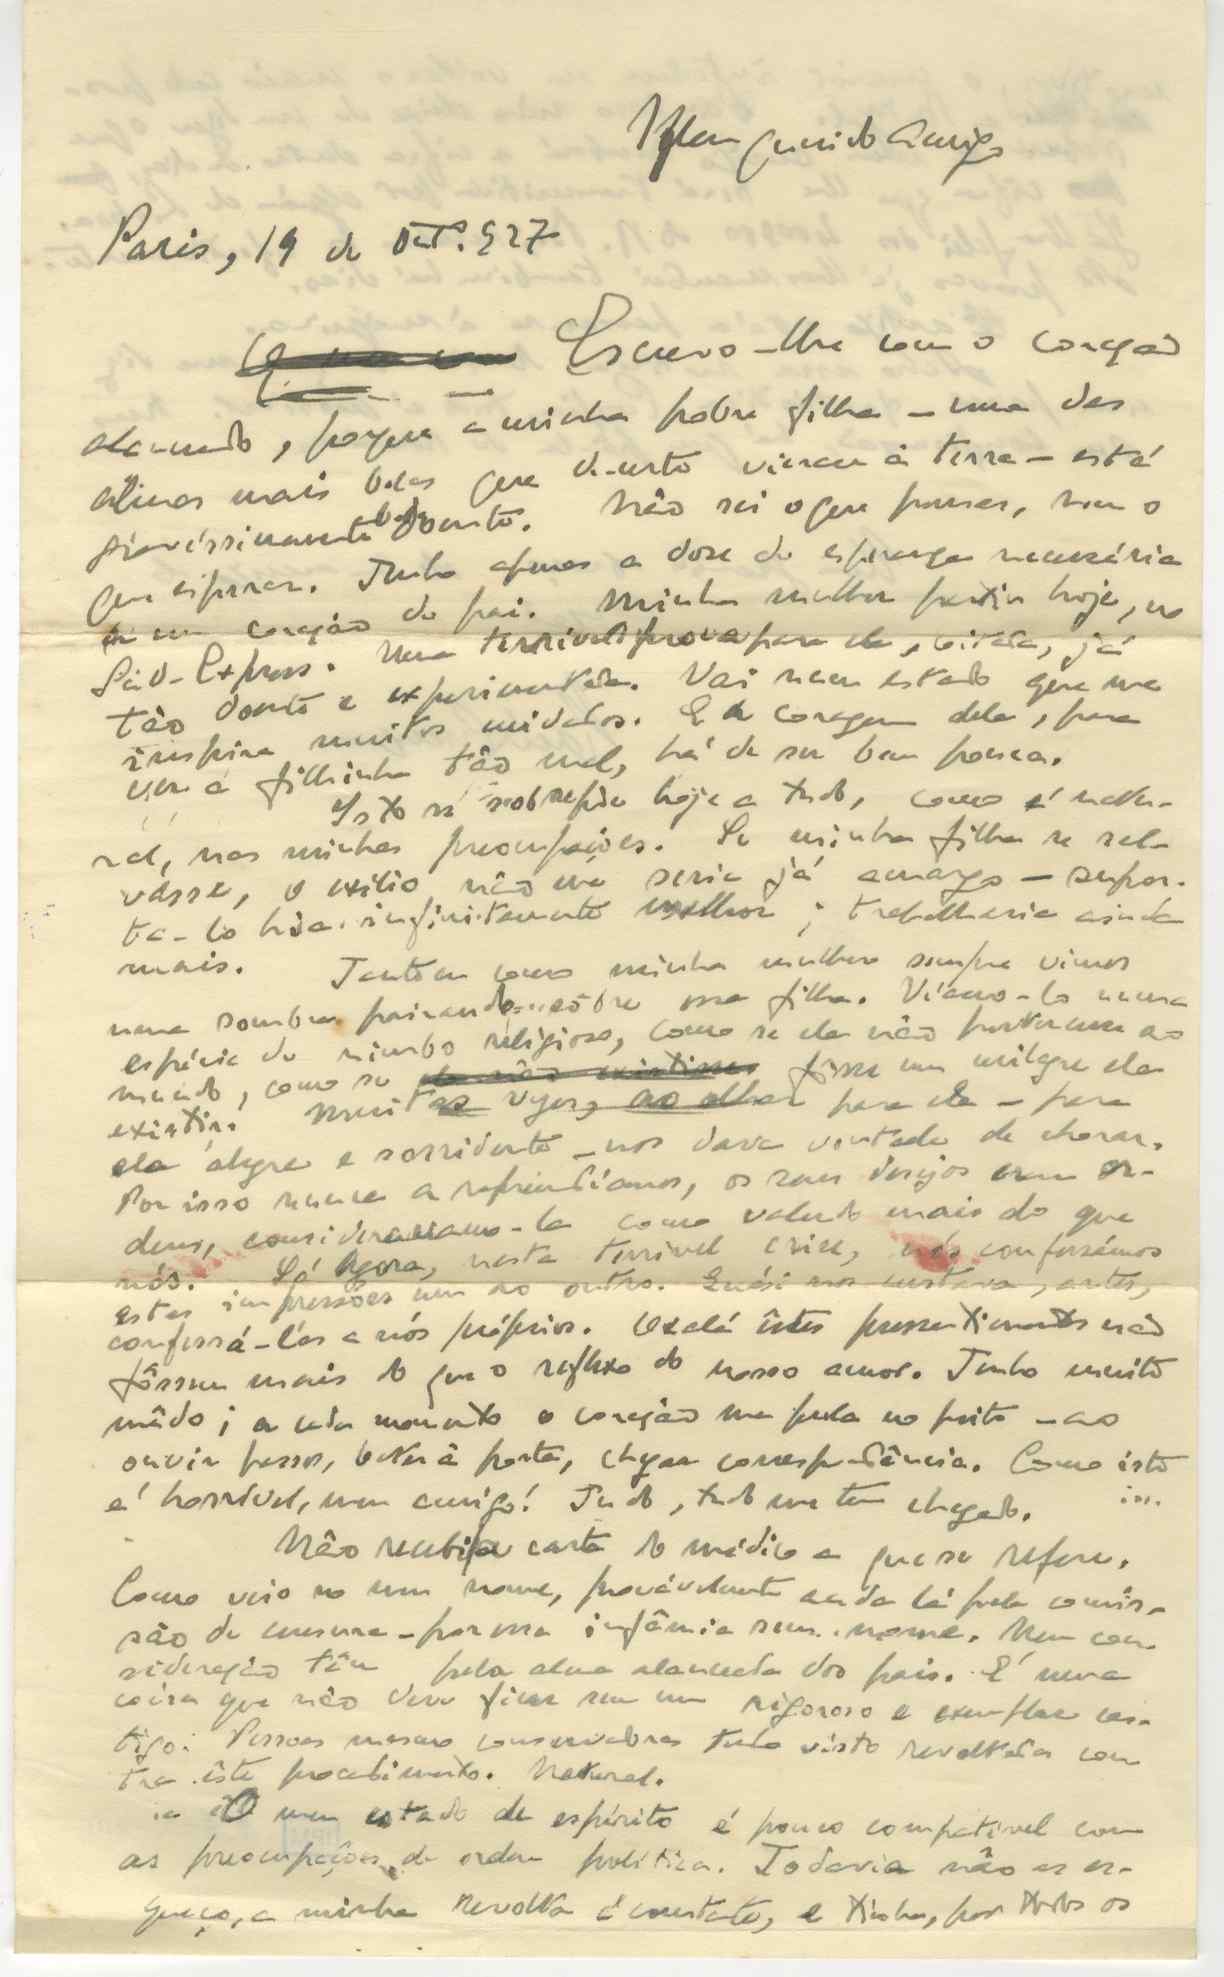 Meu querido Amigo
Paris, 19 de Out.º 927
Escrevo-lhe com o coração
alanceado, porque a minha pobre filha – uma das
almas mais belas que decerto vieram à terra – está
gravissimamente doente. Não sei o que pensar, nem o
que esperar. Tenho apenas a dose de esperança necessária
a um coração de pai. Minha mulher partiu hoje, no
Sud-Express. Uma terrível prova para ela, coitada, já
tão doente e experimentada. Vai num estado que me
inspira muitos cuidados. E a coragem dela, para
ver a filhinha tão mal, há de ser bem pouca.
Isto se sobrepõe hoje a tudo, como é natu-
ral, nas minhas preocupações. Se minha filha se sal-
vasse, o exílio não me seria já amargo – supor-
ta-lo hia infinitamente melhor; trabalharia ainda
mais. Tanto eu como minha mulher sempre vimos
uma sombra pairando sôbre essa filha. Viamo-la numa
espécie de nimbo religioso, como se ela não pertencesse ao
mundo, como se fosse um milagre ela
existir. Muitas vezes, ao olhar para ela – para
ela alegre e sorridente – nos dava vontade de chorar.
Por isso nunca a repreendíamos, os seus desejos eram or-
dens, consideravamo-la como valendo mais do que
nós. Só agora, nesta terrivel crise, nós confessámos
estas impressões um ao outro. Quási nos custava, antes,
confessá-las a nós próprios. Oxalá êstes pressentimentos não
fôssem mais do que o reflexo do nosso amor. Tenho muito
mêdo; a cada momento o coração me pula no peito – ao
ouvir passos, bater à porta, chegar correspondência. Como isto
é horrível, meu amigo! Tudo, tudo me tem chegado.
Não recebi a carta do médico a que se refere.
Como veio no meu nome, provávelmente anda lá pela comis-
são de censura – por essa infâmia sem nome. Nem con-
sideração têm pela alma alanceada dos pais. É uma
coisa que não deve ficar sem um rigoroso e exemplar cas-
tigo. Pessoas mesmo conservadoras tenho visto revoltadas con-
tra êste procedimento. Natural.
O meu estado de espírito é pouco compativel com
as preocupações de ordem politica. Todavia não as es-
queço, a minha revolta é constante, e tenho, por todos os